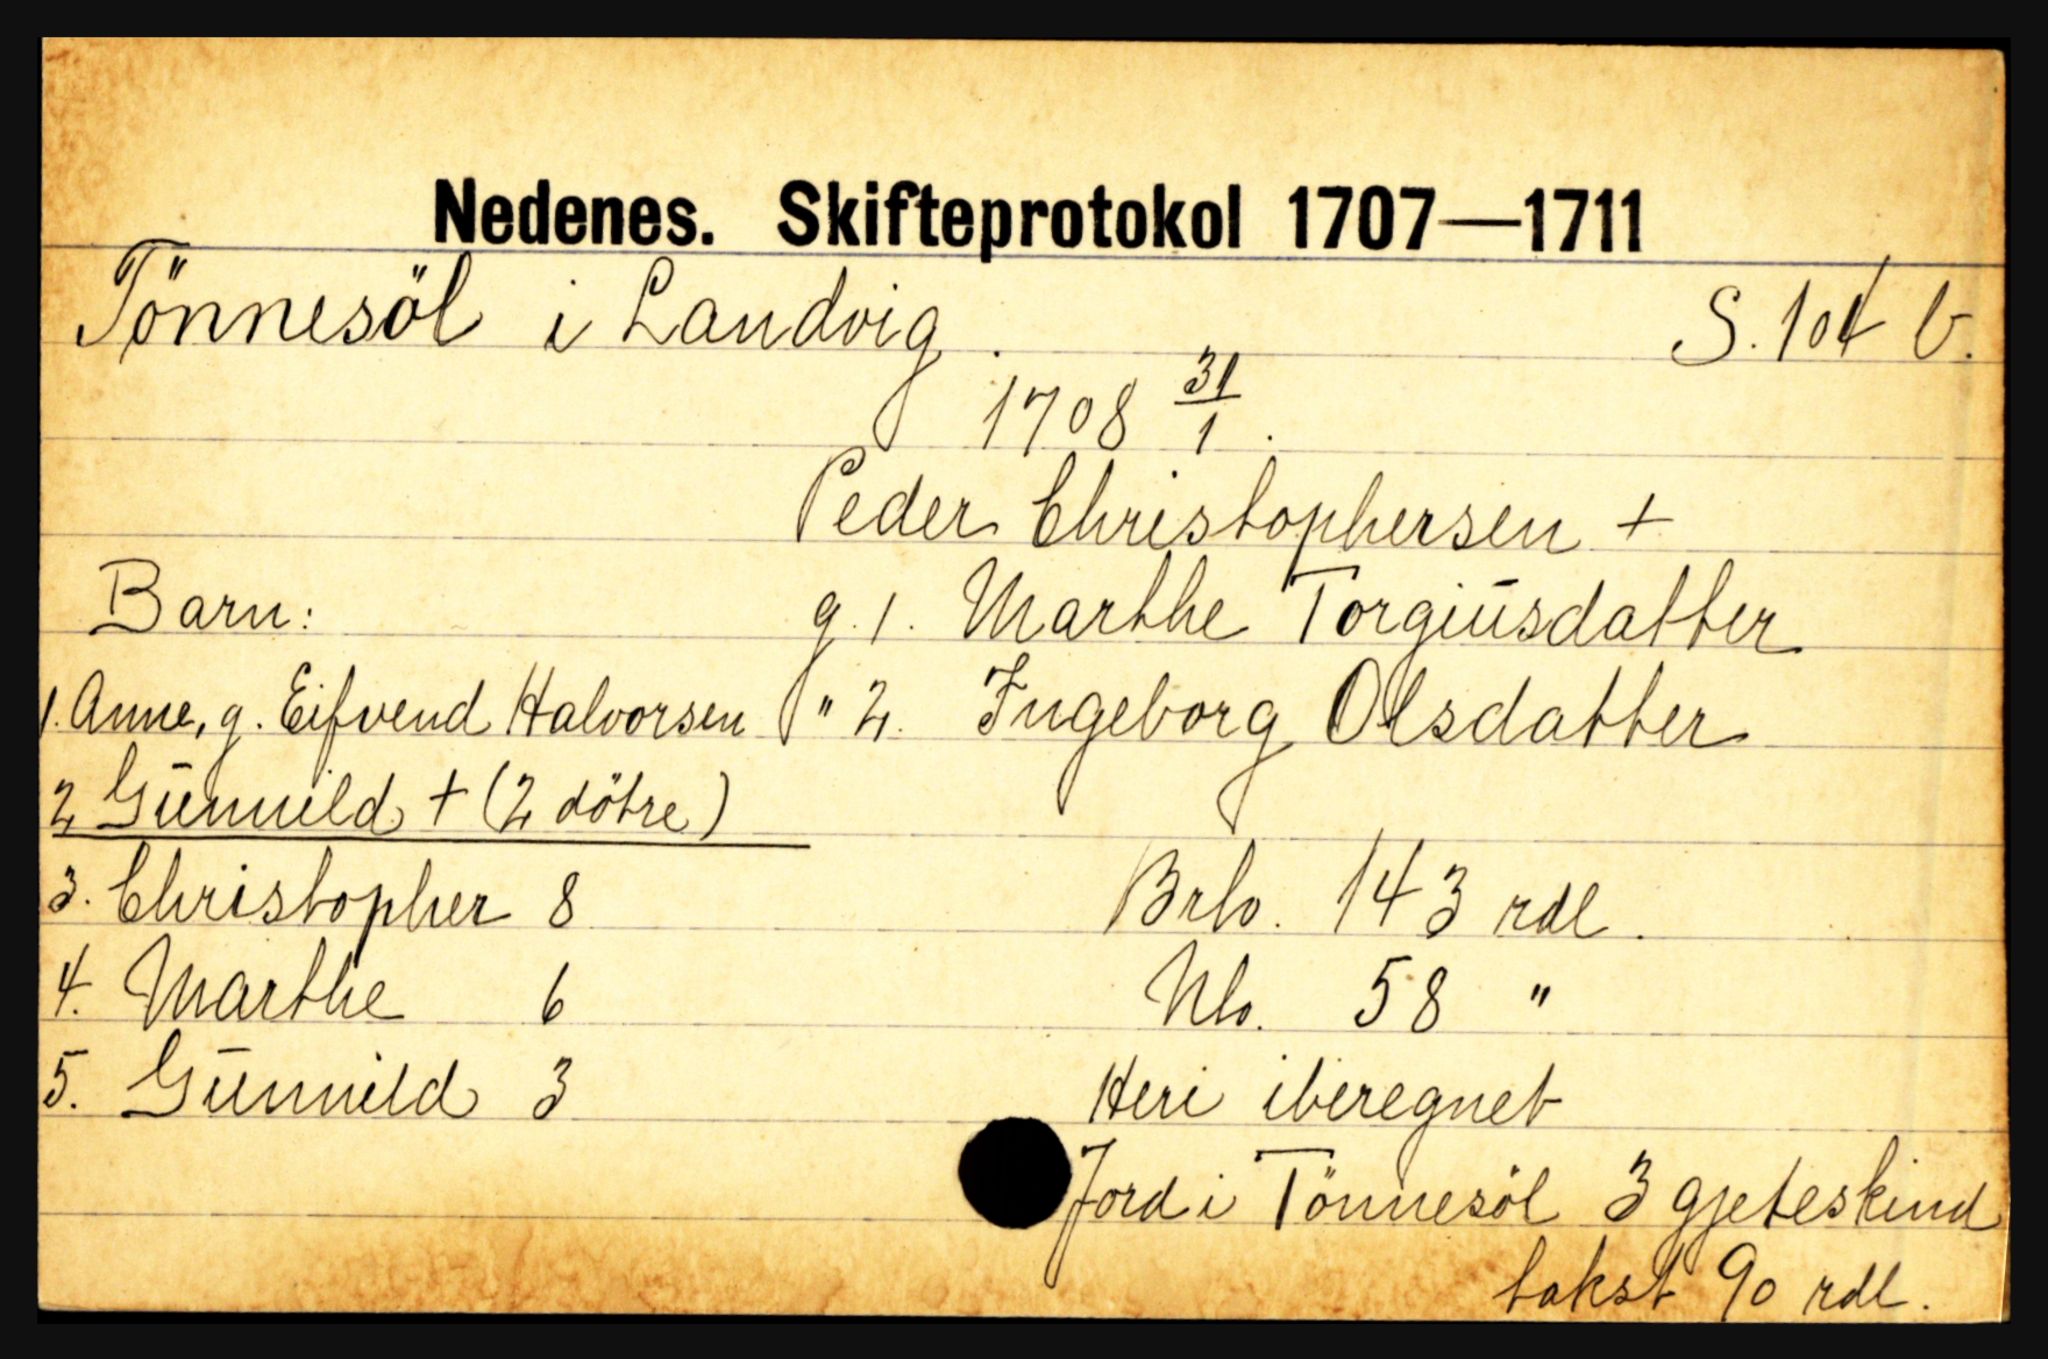 Nedenes. Skifteprotokol 1707—1711
Tönnesöl i Landvig. S. 104 b.
1708 31/1.
Peder Christophersen +
Barn: g. 1. Marthe Torgiūsdatter
1. Anne, g. Eifvend Halvorsen " 2. Ingeborg Olsdatter
2 Gūnnild + (2 dötre)
3. Christopher 8 Brto. 143 rdl.
4. Marthe 6 Nto. 58 "
5. Gūnnild 3 Heri iberegnet
Jord i Tönnesöl 3 gjeteskind
takst 90 rdl.